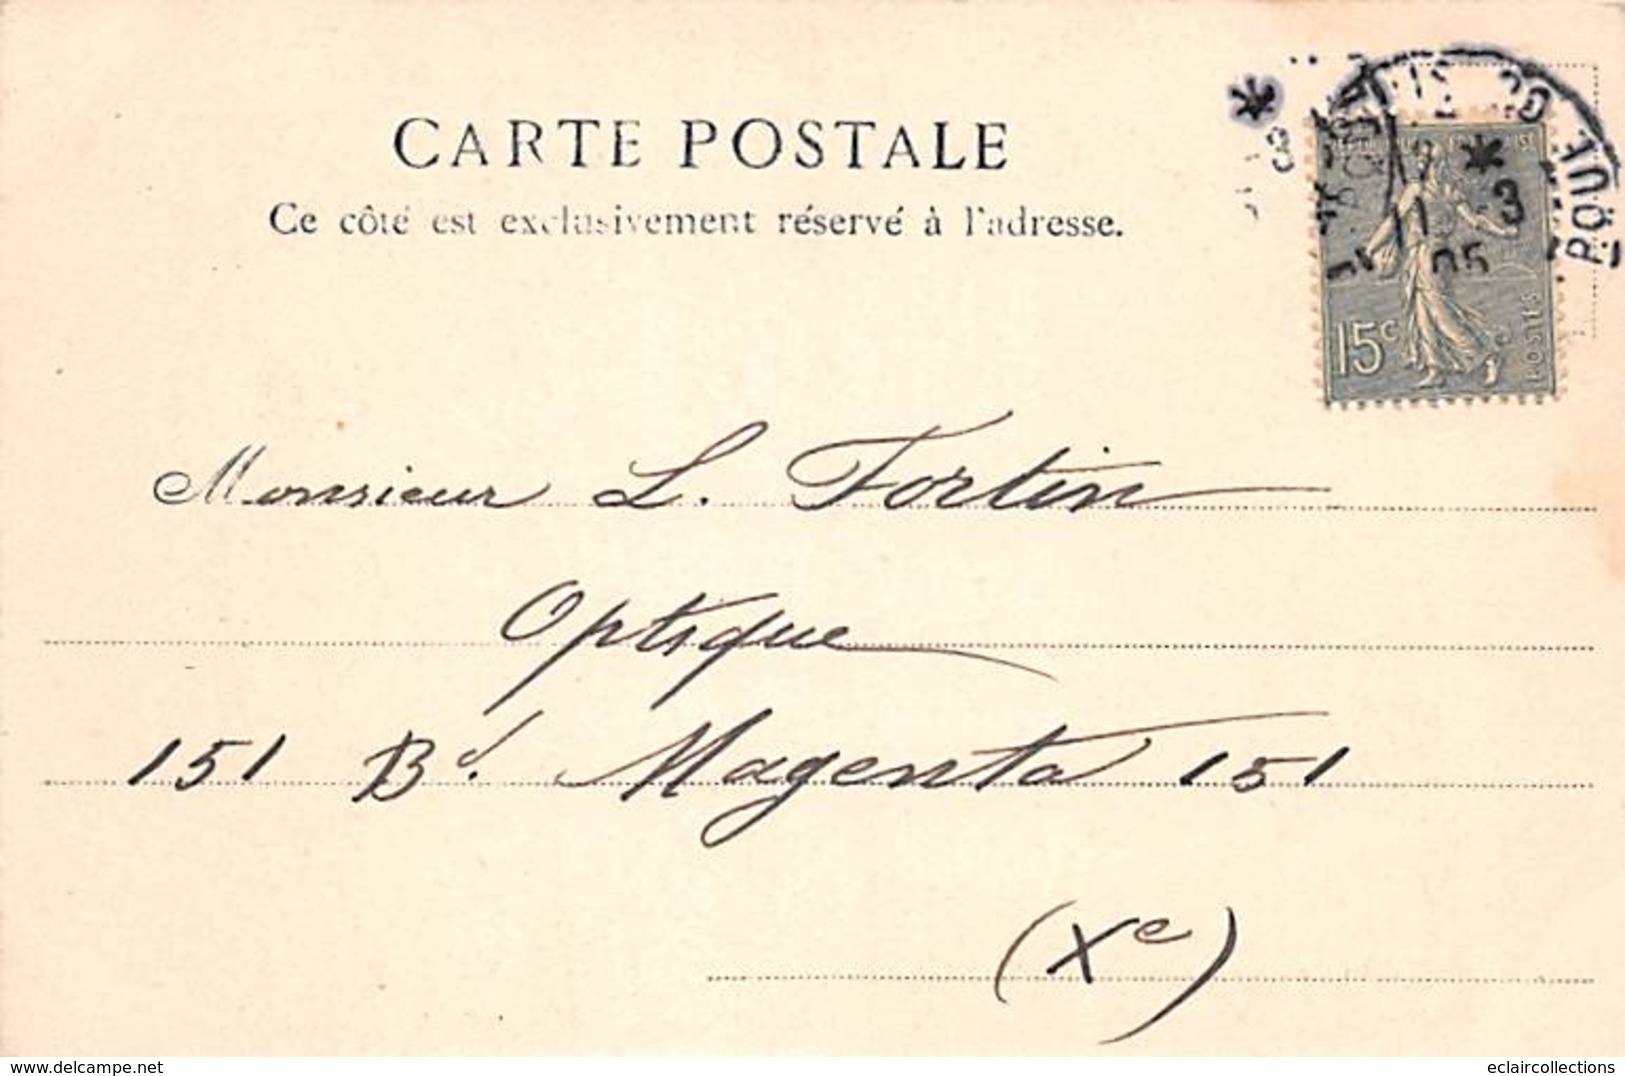 CARTE POSTALE
Ce côté est exclusivement réservé à l'adresse.
11 3
05
15c
POSTES
Monsieur L. Fortin
Optique
151 Bd. Magenta 151
(Xe)
delcampe.net
eclaircollections